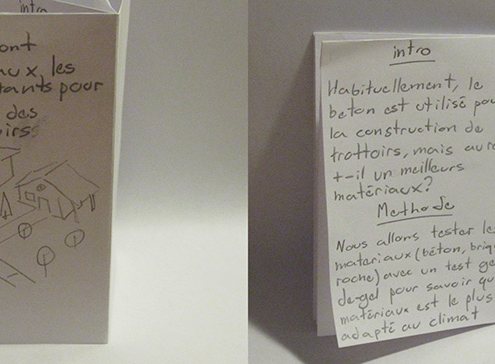 intro
ont
aux, les
tants pour
des
oirs
intro
Habituellement, le
beton est utilisé pou
la construction de
trottoirs, mais aura
t-il un meilleurs
matériaux?
Methode
Nous allons tester les
materiaux (béton, briq
roche) avec un test ge
de-gel pour savoir qu
matériaux est le plus
adapté au climat